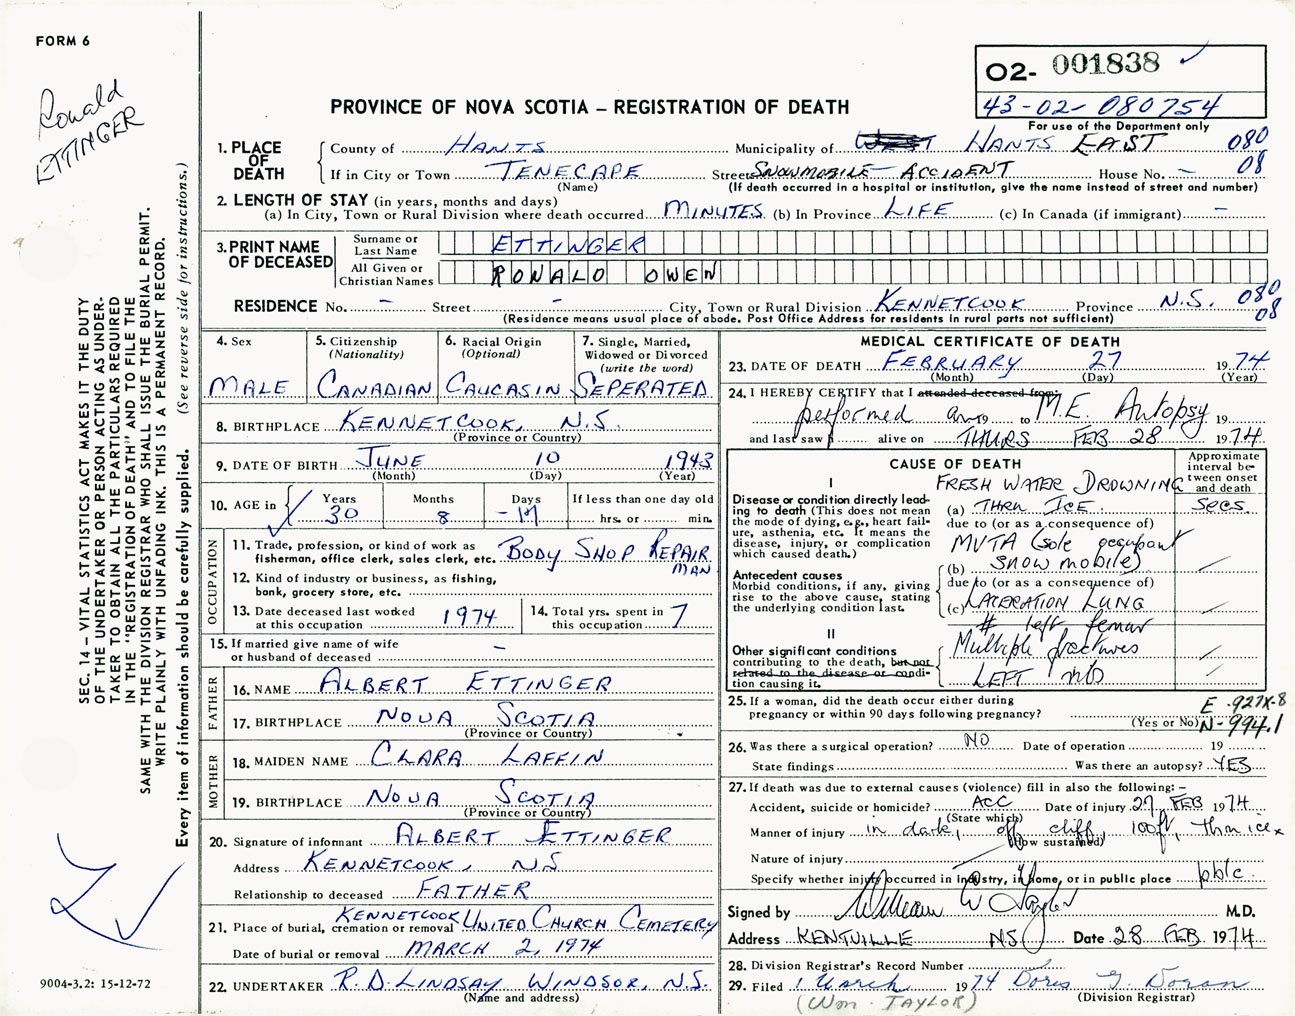 FORM 6
Ronald
ETTINGER
O2- 001838
43-02-080754
For use of the Department only
PROVINCE OF NOVA SCOTIA – REGISTRATION OF DEATH
1. PLACE OF DEATH
County of HANTS Municipality of WEST HANTS EAST 080
If in City or Town TENECAPE Street SNOWMOBILE – ACCIDENT House No. – 08
(Name) (If death occurred in a hospital or institution, give the name instead of street and number)
2. LENGTH OF STAY (in years, months and days)
(a) In City, Town or Rural Division where death occurred MINUTES (b) In Province LIFE (c) In Canada (if immigrant) –
3. PRINT NAME OF DECEASED
Surname or Last Name ETTINGER
All Given or Christian Names RONALD OWEN
RESIDENCE No. – Street – City, Town or Rural Division KENNETCOOK Province N.S. 080 08
(Residence means usual place of abode. Post Office Address for residents in rural parts not sufficient)
4. Sex
MALE
5. Citizenship (Nationality)
CANADIAN
6. Racial Origin (Optional)
CAUCASIN
7. Single, Married, Widowed or Divorced (write the word)
SEPERATED
8. BIRTHPLACE KENNETCOOK, N.S.
(Province or Country)
9. DATE OF BIRTH JUNE 10 1943
(Month) (Day) (Year)
10. AGE in Years 30 Months 8 Days 17 If less than one day old hrs. or min.
OCCUPATION
11. Trade, profession, or kind of work as fisherman, office clerk, sales clerk, etc. BODY SHOP REPAIR MAN
12. Kind of industry or business, as fishing, bank, grocery store, etc.
13. Date deceased last worked at this occupation 1974
14. Total yrs. spent in this occupation 7
15. If married give name of wife or husband of deceased –
FATHER
16. NAME ALBERT ETTINGER
17. BIRTHPLACE NOVA SCOTIA
(Province or Country)
MOTHER
18. MAIDEN NAME CLARA LAFFIN
19. BIRTHPLACE NOVA SCOTIA
(Province or Country)
20. Signature of informant ALBERT ETTINGER
Address KENNETCOOK, NS
Relationship to deceased FATHER
21. Place of burial, cremation or removal KENNETCOOK UNITED CHURCH CEMETERY
Date of burial or removal MARCH 2, 1974
22. UNDERTAKER R.D. LINDSAY WINDSOR, N.S.
(Name and address)
MEDICAL CERTIFICATE OF DEATH
23. DATE OF DEATH FEBRUARY 27 1974
(Month) (Day) (Year)
24. I HEREBY CERTIFY that I attended deceased from:
performed an 19 to M.E. Autopsy 19
and last saw h alive on THURS FEB 28 1974
CAUSE OF DEATH
Approximate interval between onset and death
I
Disease or condition directly leading to death (This does not mean the mode of dying, e.g., heart failure, asthenia, etc. It means the disease, injury, or complication which caused death.)
FRESH WATER DROWNING
(a) THRU ICE SECS
due to (or as a consequence of)
MVTA (sole occupant
(b) SNOWMOBILE)
Antecedent causes
Morbid conditions, if any, giving rise to the above cause, stating the underlying condition last.
due to (or as a consequence of)
(c) LACERATION LUNG
II
Other significant conditions contributing to the death, but not related to the disease or condition causing it.
# left femur
Multiple fractures
LEFT ribs
25. If a woman, did the death occur either during pregnancy or within 90 days following pregnancy?
(Yes or No)
E-927X-8
N-994.1
26. Was there a surgical operation? NO Date of operation 19
State findings Was there an autopsy? YES
27. If death was due to external causes (violence) fill in also the following: –
Accident, suicide or homicide? ACC Date of injury 27 FEB 1974
(State which)
Manner of injury in dark, off cliff, 100ft, thru ice
(How sustained)
Nature of injury
Specify whether injury occurred in industry, in home, or in public place pblc
Signed by William W Taylor M.D.
Address KENTVILLE NS Date 28 FEB 1974
28. Division Registrar's Record Number
29. Filed 1 March 1974 Doris G. Doran
(Division Registrar)
(Wm. TAYLOR)
SEC. 14 – VITAL STATISTICS ACT MAKES IT THE DUTY
OF THE UNDERTAKER OR PERSON ACTING AS UNDER-
TAKER TO OBTAIN ALL THE PARTICULARS REQUIRED
IN THE "REGISTRATION OF DEATH" AND TO FILE THE
SAME WITH THE DIVISION REGISTRAR WHO SHALL ISSUE THE BURIAL PERMIT.
WRITE PLAINLY WITH UNFADING INK. THIS IS A PERMANENT RECORD.
Every item of information should be carefully supplied. (See reverse side for instructions.)
9004-3.2: 15-12-72